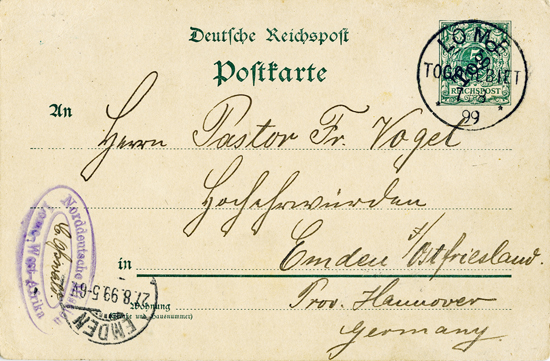 Deutsche Reichspost
Postkarte
5
REICHSPOST
Togo
LOME
TOGOGEBIET
99
An
Herrn Pastor Fr. Vogel
Hochehrwürden
in Emden i/Ostfriesland.
Prov. Hannover
Germany.
Wohnung
(Straße und Hausnummer)
Norddeutsche
West-Afrika
EMDEN
27.8.99.5-6N